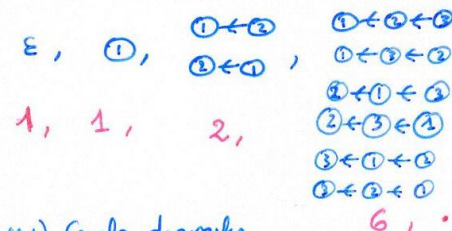 ε, ①, ①←②, ①←②←③
②←① ①←③←②
②←①←③
②←③←①
③←①←②
③←②←①
1, 1, 2, 6, .